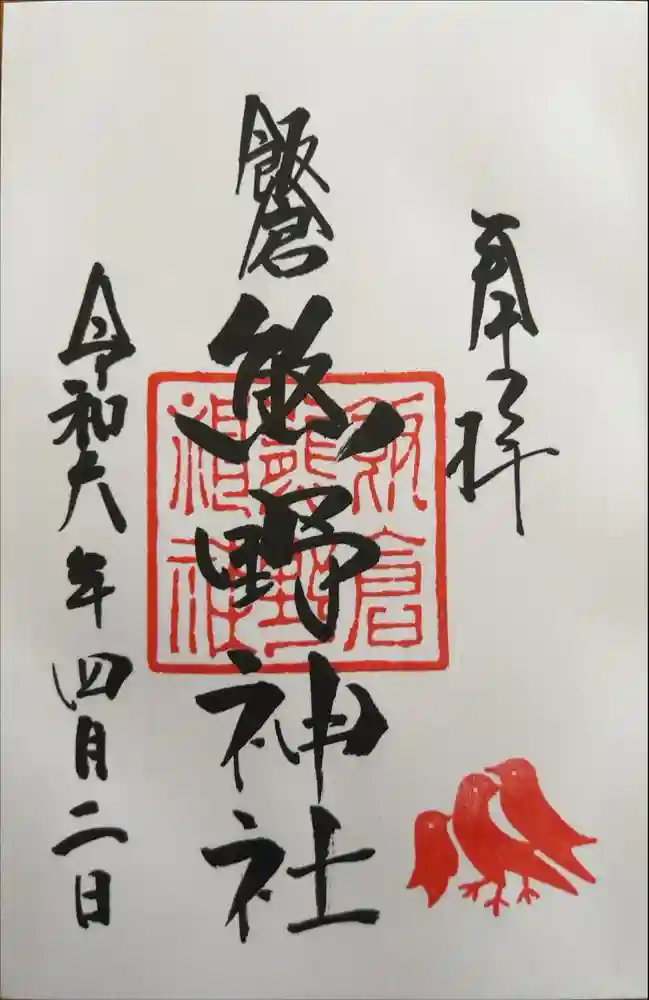 奉拝
飯倉
熊野神社
飯倉
熊野
神社
令和六年四月二日